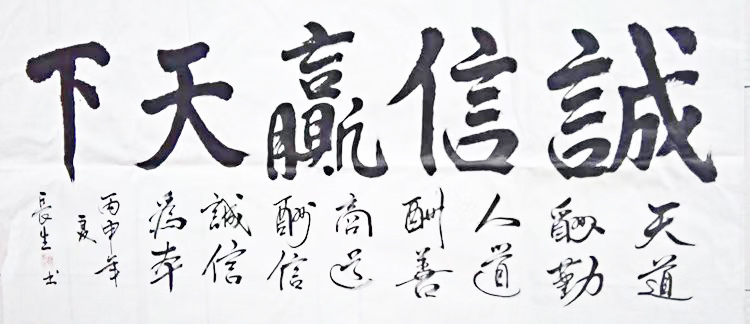 誠信贏天下
天道
酬勤
人道
酬善
商道
酬信
誠信
為本
丙申年
夏
長生书